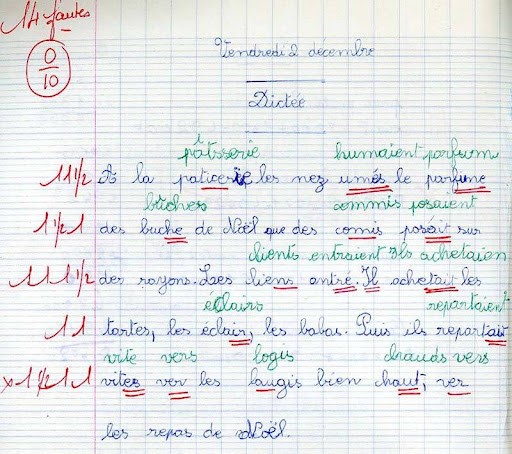 14 fautes
0
10
Vendredi 2 décembre
Dictée
pâtisserie humaient parfum
1 1 1/2 A la paticerie les nez umés le parfume
bûches commis posaient
1 1/2 1 des buche de Noël que des comis posait sur
clients entraient Ils achetaien
1 1 1 1 1/2 des rayons. Les liens entré. Il achetait les
éclairs repartaient
1 1 tartes, les éclair, les babas. Puis ils repartait
vite vers logis chauds vers
x 1 1/2 1 1 vites ver les laugis bien chaut, ver
les repas de Noël.